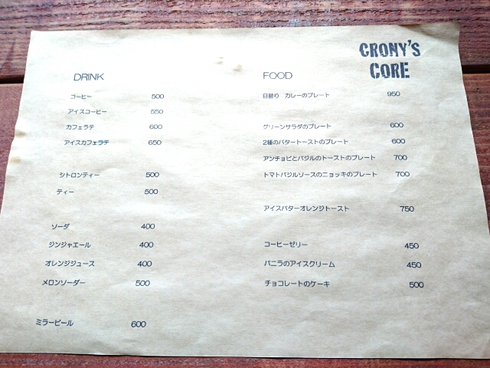 CRONY'S
CORE
DRINK
コーヒー 500
アイスコーヒー 550
カフェラテ 600
アイスカフェラテ 650
シトロンティー 500
ティー 500
ソーダ 400
ジンジャエール 400
オレンジジュース 400
メロンソーダー 500
ミラービール 600
FOOD
日替り カレーのプレート 950
グリーンサラダのプレート 600
2種のバタートーストのプレート 600
アンチョビとバジルのトーストのプレート 700
トマトバジルソースのニョッキのプレート 700
アイスバターオレンジトースト 750
コーヒーゼリー 450
バニラのアイスクリーム 450
チョコレートのケーキ 500